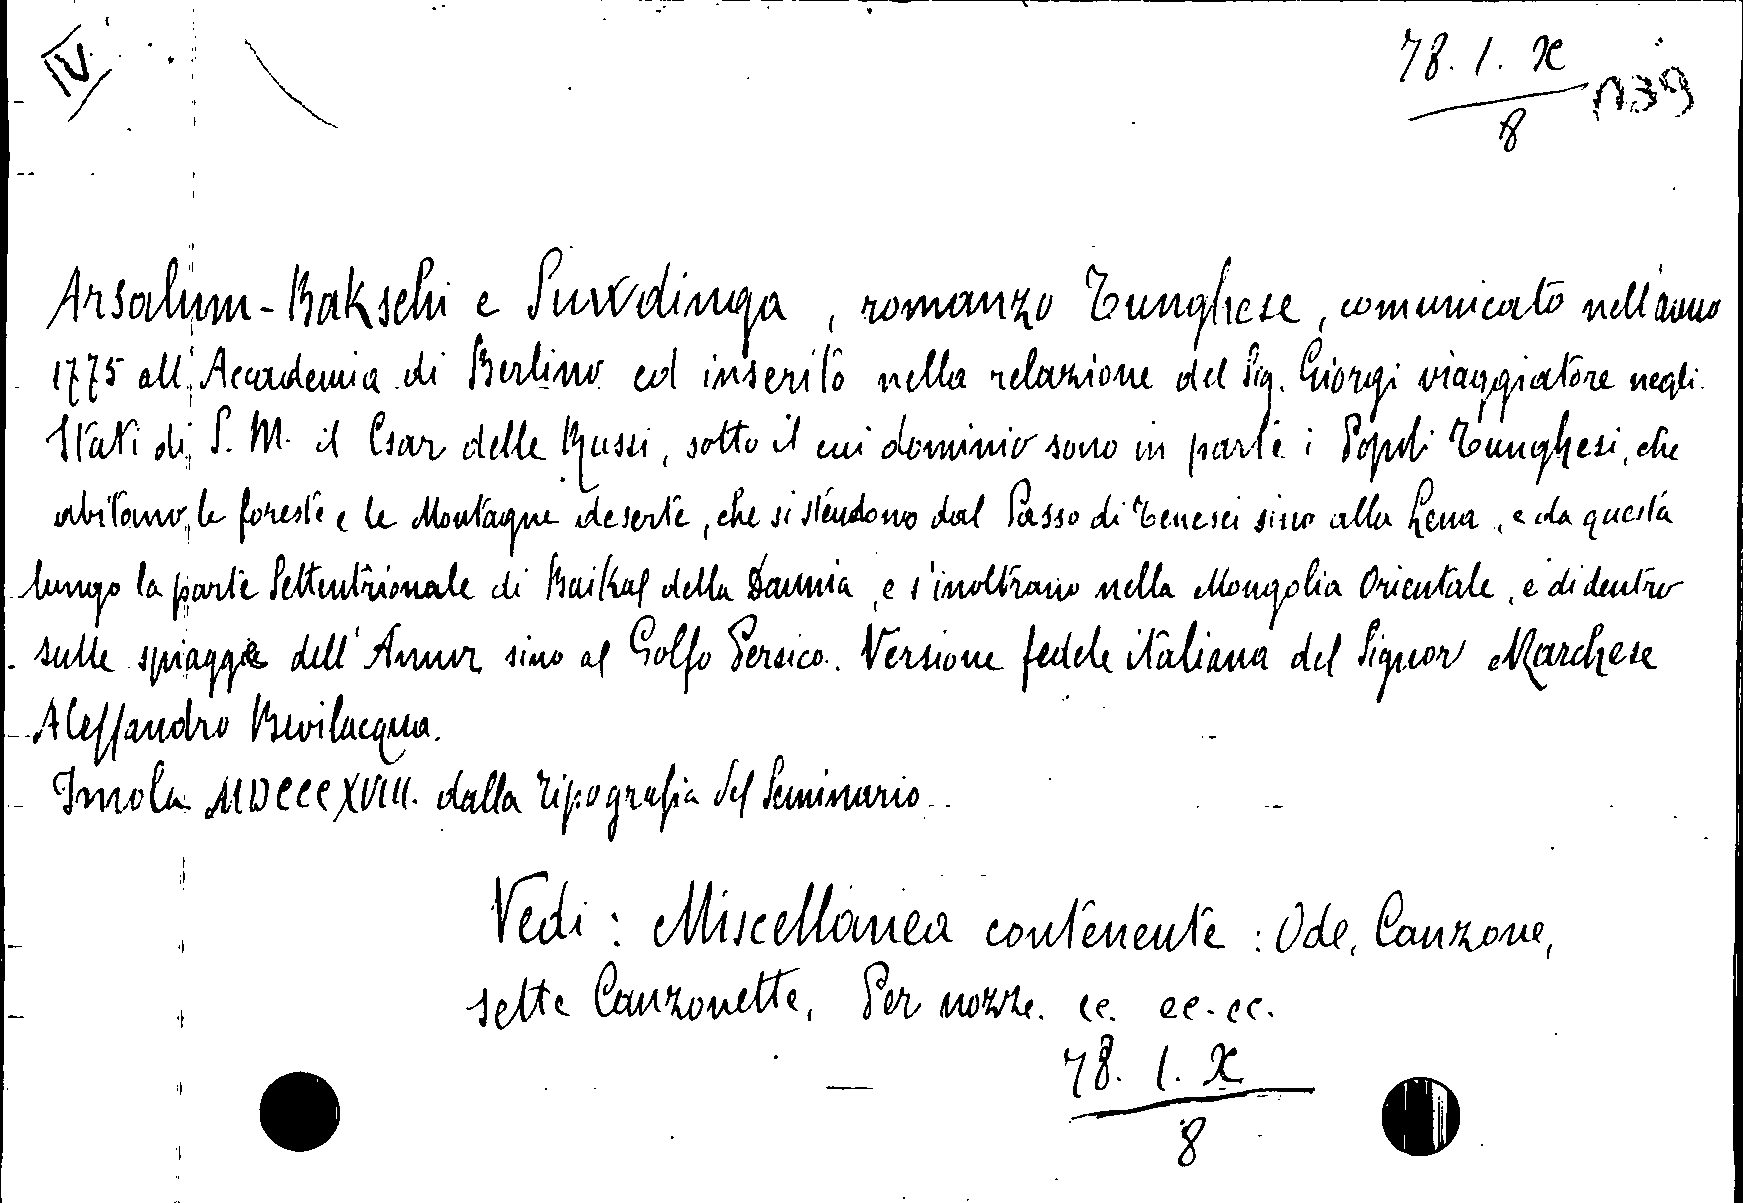 IV
78. 1. X
8
1139
Arsalum-Bakschi e Suwdinga, romanzo Tunghese, comunicato nell'anno
1775 all'Accademia di Berlino ed inserito nella relazione del Sig. Giorgi viaggiatore negli
Stati di S. M. il Csar delle Russi, sotto il cui dominio sono in parte i Popoli Tunghesi, che
abitano le foreste e le Montagne deserte, che si stendono dal Passo di Tenesei sino alla Lena, e da questa
lungo la parte Settentrionale di Baikal della Daunia, e s'inoltrano nella Mongolia Orientale, e di dentro
sulle spiagge dell'Amur sino al Golfo Persico. Versione fedele italiana del Signor Marchese
Alessandro Bevilacqua.
Imola MDCCCXVIII. dalla Tipografia del Seminario
Vedi: Miscellanea contenente: Ode, Canzone,
sette Canzonette, Per nozze. ec. ec. ec.
78. 1. X
8